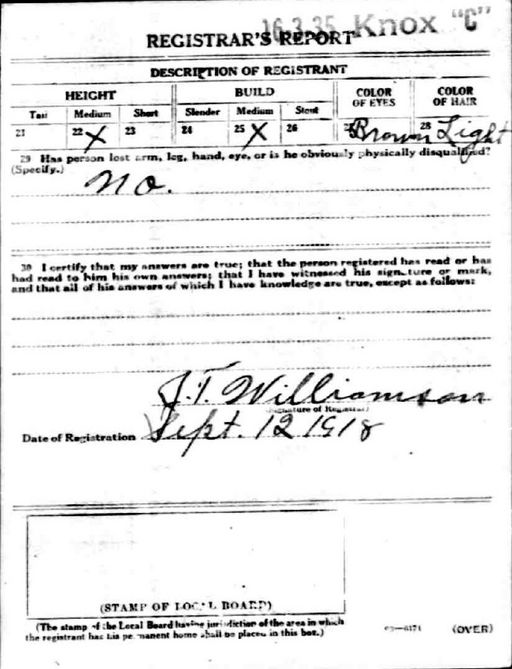 16.3.35 Knox "C"
REGISTRAR'S REPORT
DESCRIPTION OF REGISTRANT
HEIGHT BUILD COLOR OF EYES COLOR OF HAIR
Tall Medium Short Slender Medium Stout
21 22 X 23 24 25 X 26 27 Brown 28 Light
29 Has person lost arm, leg, hand, eye, or is he obviously physically disqualified?
(Specify.)
No.
30 I certify that my answers are true; that the person registered has read or has
had read to him his own answers; that I have witnessed his signature or mark,
and that all of his answers of which I have knowledge are true, except as follows:
J.T. Williamson
(Signature of Registrar)
Date of Registration Sept. 12 1918
(STAMP OF LOCAL BOARD)
(The stamp of the Local Board having jurisdiction of the area in which
the registrant has his permanent home shall be placed in this box.)
03—6171 (OVER)